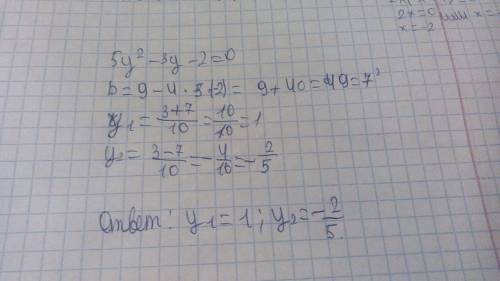 2x=0 или x=
x=-2
5y² -3y -2=0
D=9-4·5(-2)= 9+40=49=7²
y₁= 3+7/10 = 10/10 = 1
y₂= 3-7/10 = -4/10 = -2/5
Ответ: y₁=1; y₂=-2/5.